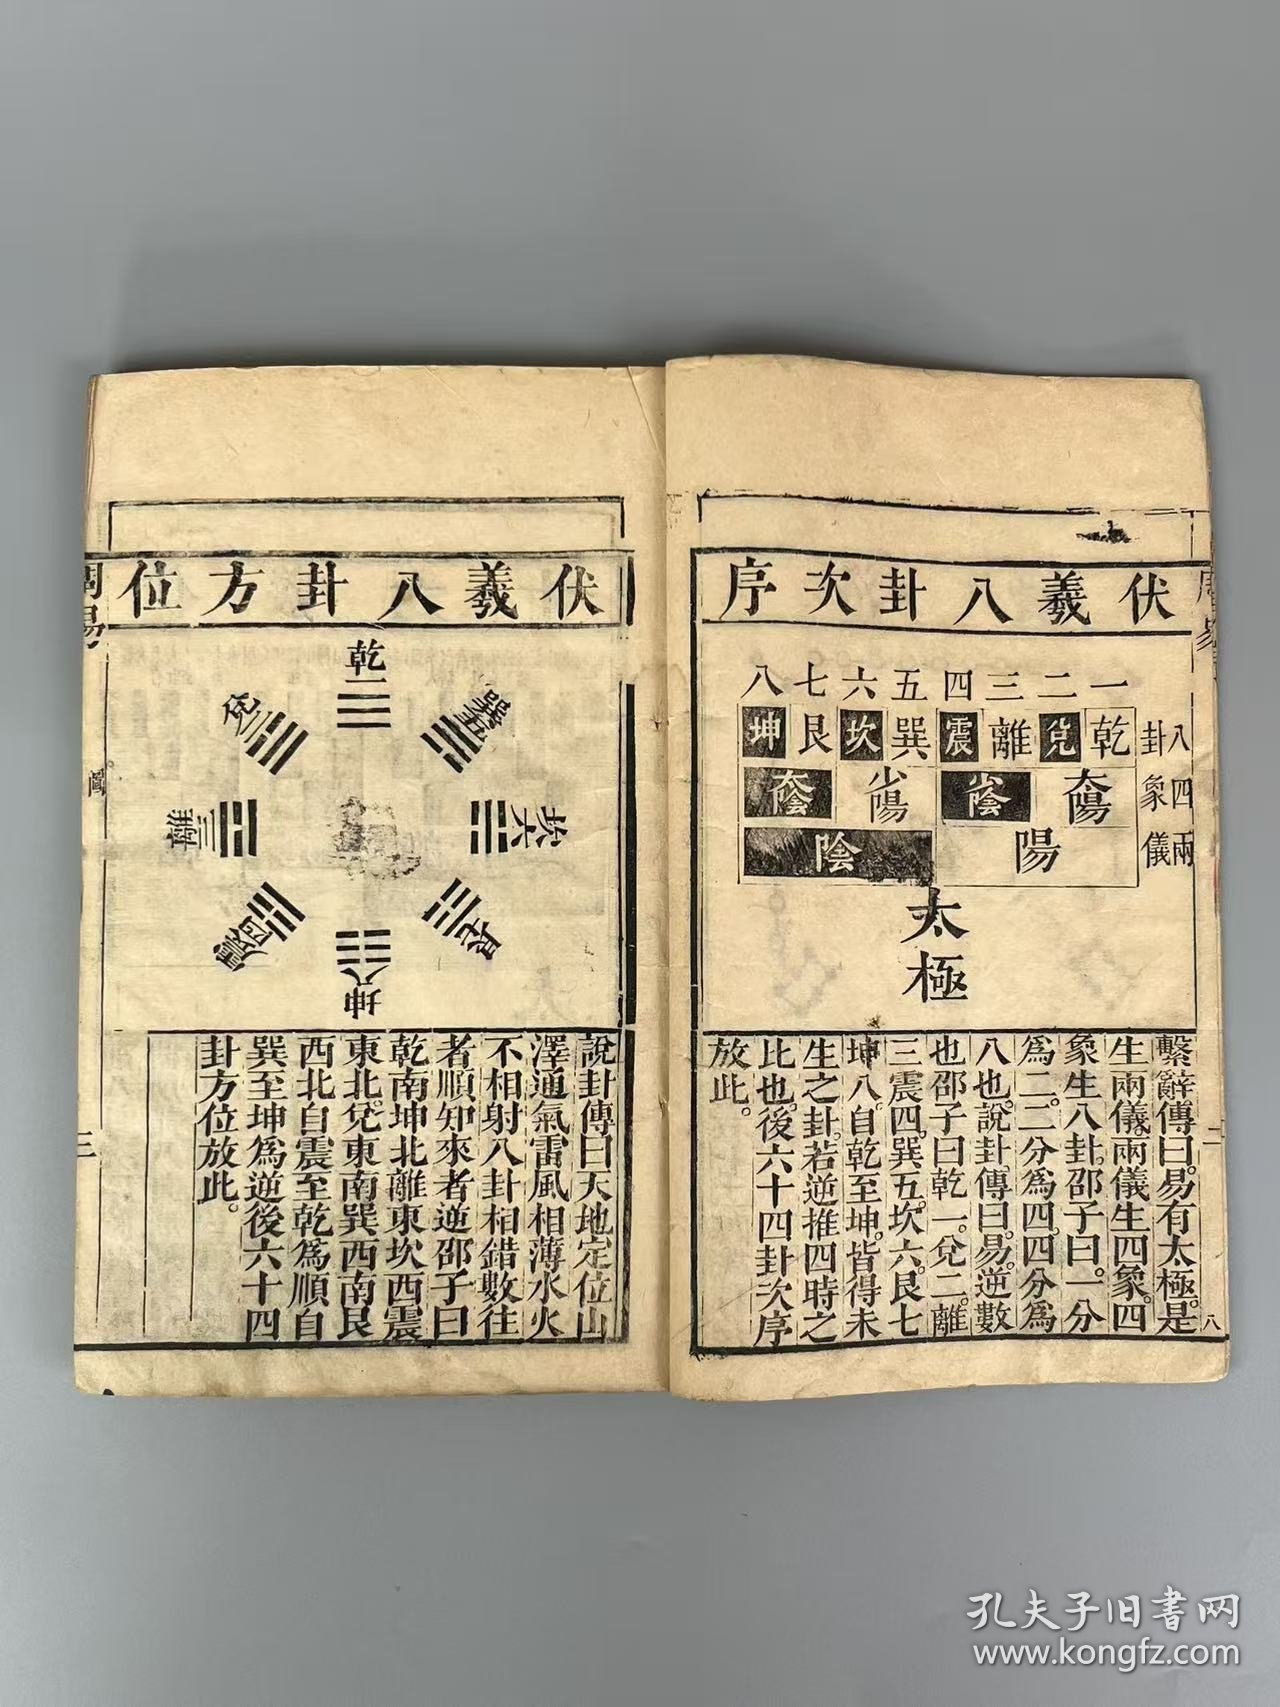 伏羲八卦次序
一二三四五六七八
乾兌離震巽坎艮坤
八卦
太陽少陰少陽太陰
四象
陽陰
兩儀
太極
繫辭傳曰。易有太極。是
生兩儀。兩儀生四象。四
象生八卦。邵子曰。一分
爲二。二分爲四。四分爲
八也。說卦傳曰。易。逆數
也。邵子曰。乾一。兌二。離
三。震四。巽五。坎六。艮七。
坤八。自乾至坤。皆得未
生之卦。若逆推四時之
比也。後六十四卦次序
放此。
周易
二
八
伏羲八卦方位
乾一
兌二
離三
震四
巽五
坎六
艮七
坤八
說卦傳曰天地定位山
澤通氣雷風相薄水火
不相射八卦相錯數往
者順知來者逆邵子曰
乾南坤北離東坎西震
東北。兌東南巽西南艮
西北自震至乾爲順自
巽至坤爲逆後六十四
卦方位放此。
周易
圖
三
孔夫子旧书网
www.kongfz.com